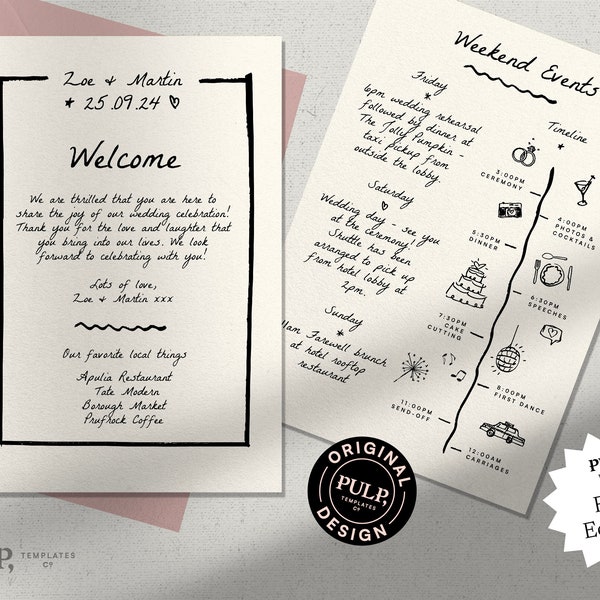 Zoe & Martin
* 25.09.24 ♡
Welcome
We are thrilled that you are here to
share the joy of our wedding celebration!
Thank you for the love and laughter that
you bring into our lives. We look
forward to celebrating with you!
Lots of love,
Zoe & Martin xxx
Our favorite local things
Apulia Restaurant
Tate Modern
Borough Market
Prufrock Coffee
Weekend Events
Friday
*
6pm wedding rehearsal
followed by dinner at
The Jolly Pumpkin -
taxi pickup from
outside the lobby.
Saturday
♡
Wedding day - see you
at the ceremony!
Shuttle has been
arranged to pick up
from hotel lobby at
2pm.
Sunday
*
11am Farewell brunch
at hotel rooftop
restaurant
Timeline
*
3:00PM
CEREMONY
4:00PM
PHOTOS &
COCKTAILS
5:30PM
DINNER
6:30PM
SPEECHES
7:30PM
CAKE
CUTTING
8:00PM
FIRST DANCE
11:00PM
SEND-OFF
12:00AM
CARRIAGES
ORIGINAL
PULP,
TEMPLATES
Cº
DESIGN
P,
TEMPLATES
Cº